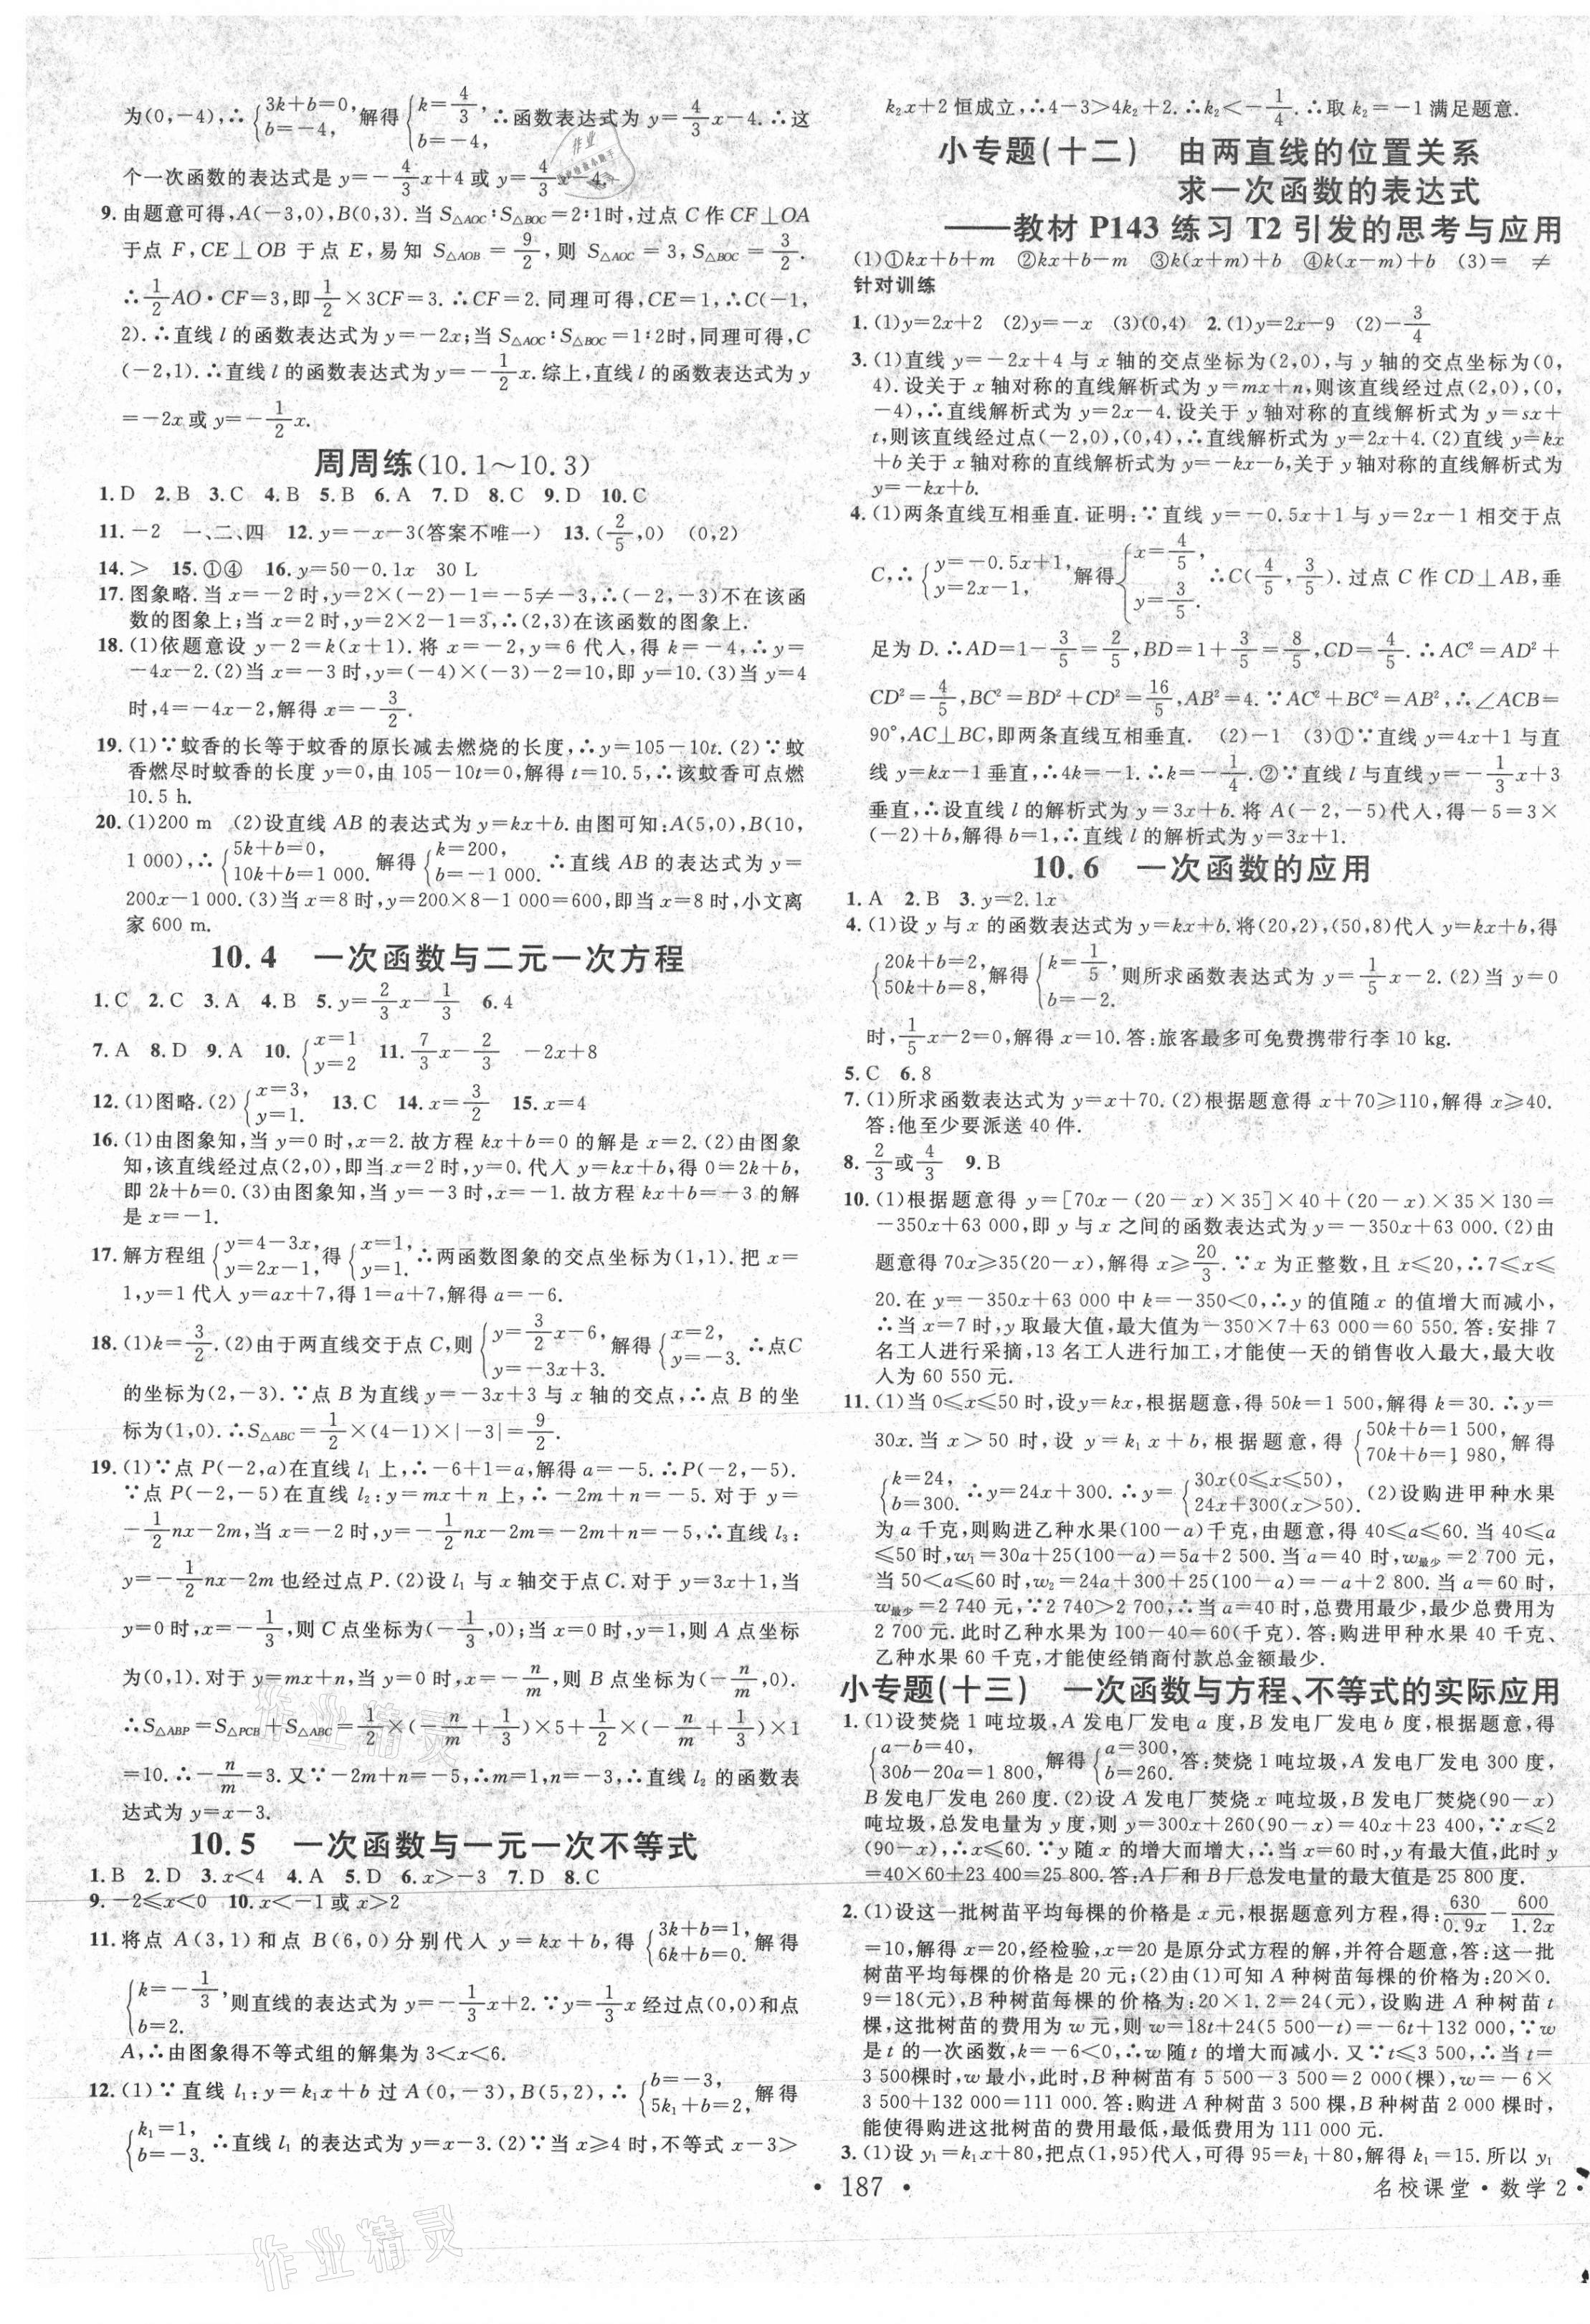 为(0,-4),∴{3k+b=0, b=-4, 解得{k=4/3, b=-4, ∴函数表达式为 y=4/3x-4.∴这
个一次函数的表达式是 y=-4/3x+4或y=4/3x-4.
9.由题意可得,A(-3,0),B(0,3).当 S△AOC∶S△BOC=2∶1时,过点 C 作 CF⊥OA
于点 F,CE⊥OB 于点 E,易知 S△AOB=9/2,则 S△AOC=3,S△BOC=3/2.
∴1/2AO·CF=3,即1/2×3CF=3.∴CF=2.同理可得,CE=1,∴C(-1,
2).∴直线 l 的函数表达式为 y=-2x;当 S△AOC∶S△BOC=1∶2时,同理可得,C
(-2,1).∴直线 l 的函数表达式为 y=-1/2x.综上,直线 l 的函数表达式为 y
=-2x或 y=-1/2x.
周周练(10.1～10.3)
1.D 2.B 3.C 4.B 5.B 6.A 7.D 8.C 9.D 10.C
11.-2 一、二、四 12.y=-x-3(答案不唯一) 13.(2/5,0) (0,2)
14.> 15.①④ 16.y=50-0.1x 30 L
17.图象略.当 x=-2 时,y=2×(-2)-1=-5≠-3,∴(-2,-3)不在该函
数的图象上;当 x=2 时,y=2×2-1=3,∴(2,3)在该函数的图象上.
18.(1)依题意设 y-2=k(x+1).将 x=-2,y=6 代入,得 k=-4,∴y=
-4x-2.(2)当 x=-3 时,y=(-4)×(-3)-2=10,即 y=10.(3)当 y=4
时,4=-4x-2,解得 x=-3/2.
19.(1)∵蚊香的长等于蚊香的原长减去燃烧的长度,∴y=105-10t.(2)∵蚊
香燃尽时蚊香的长度 y=0,由 105-10t=0,解得 t=10.5,∴该蚊香可点燃
10.5 h.
20.(1)200 m (2)设直线 AB 的表达式为 y=kx+b.由图可知:A(5,0),B(10,
1 000),∴{5k+b=0, 10k+b=1 000. 解得{k=200, b=-1 000. ∴直线 AB 的表达式为 y=
200x-1 000.(3)当 x=8 时,y=200×8-1 000=600,即当 x=8 时,小文离
家 600 m.
10.4 一次函数与二元一次方程
1.C 2.C 3.A 4.B 5.y=2/3x-1/3 6.4
7.A 8.D 9.A 10.{x=1 y=2 11.7/3x-2/3 -2x+8
12.(1)图略.(2){x=3, y=1. 13.C 14.x=3/2 15.x=4
16.(1)由图象知,当 y=0 时,x=2.故方程 kx+b=0 的解是 x=2.(2)由图象
知,该直线经过点(2,0),即当 x=2 时,y=0.代入 y=kx+b,得 0=2k+b,
即 2k+b=0.(3)由图象知,当 y=-3 时,x=-1.故方程 kx+b=-3 的解
是 x=-1.
17.解方程组{y=4-3x, y=2x-1, 得{x=1, y=1. ∴两函数图象的交点坐标为(1,1).把 x=
1,y=1 代入 y=ax+7,得 1=a+7,解得 a=-6.
18.(1)k=3/2.(2)由于两直线交于点 C,则{y=3/2x-6, y=-3x+3. 解得{x=2, y=-3. ∴点C
的坐标为(2,-3).∵点 B 为直线 y=-3x+3 与 x 轴的交点,∴点 B 的坐
标为(1,0).∴S△ABC=1/2×(4-1)×|-3|=9/2.
19.(1)∵点 P(-2,a)在直线 l₁ 上,∴-6+1=a,解得 a=-5.∴P(-2,-5).
∵点 P(-2,-5)在直线 l₂:y=mx+n 上,∴-2m+n=-5.对于 y=
-1/2nx-2m,当 x=-2 时,y=-1/2nx-2m=-2m+n=-5,∴直线 l₃:
y=-1/2nx-2m也经过点 P.(2)设 l₁ 与 x轴交于点C.对于 y=3x+1,当
y=0 时,x=-1/3,则 C 点坐标为(-1/3,0);当 x=0 时,y=1,则 A 点坐标
为(0,1).对于 y=mx+n,当 y=0 时,x=-n/m,则 B 点坐标为(-n/m,0).
∴S△ABP=S△PCB+S△ABC=1/2×(-n/m+1/3)×5+1/2×(-n/m+1/3)×1
=10.∴-n/m=3.又∵-2m+n=-5,∴m=1,n=-3,∴直线 l₂ 的函数表
达式为 y=x-3.
10.5 一次函数与一元一次不等式
1.B 2.D 3.x<4 4.A 5.D 6.x>-3 7.D 8.C
9.-2≤x<0 10.x<-1 或 x>2
11.将点 A(3,1)和点 B(6,0)分别代入 y=kx+b,得{3k+b=1, 6k+b=0. 解得
{k=-1/3, b=2. 则直线的表达式为 y=-1/3x+2.∵y=1/3x 经过点(0,0)和点
A,∴由图象得不等式组的解集为 3<x<6.
12.(1)∵直线 l₁:y=k₁x+b 过 A(0,-3),B(5,2),∴{b=-3, 5k₁+b=2, 解得
{k₁=1, b=-3. ∴直线 l₁ 的表达式为 y=x-3.(2)∵当 x≥4 时,不等式 x-3>
k₂x+2 恒成立,∴4-3>4k₂+2.∴k₂<-1/4.∴取 k₂=-1 满足题意.
小专题(十二) 由两直线的位置关系
求一次函数的表达式
——教材 P143 练习 T2 引发的思考与应用
(1)①kx+b+m ②kx+b-m ③k(x+m)+b ④k(x-m)+b (3)= ≠
针对训练
1.(1)y=2x+2 (2)y=-x (3)(0,4) 2.(1)y=2x-9 (2)-3/4
3.(1)直线 y=-2x+4 与 x 轴的交点坐标为(2,0),与 y 轴的交点坐标为(0,
4).设关于 x 轴对称的直线解析式为 y=mx+n,则该直线经过点(2,0),(0,
-4),∴直线解析式为 y=2x-4.设关于 y 轴对称的直线解析式为 y=sx+
t,则该直线经过点(-2,0),(0,4),∴直线解析式为 y=2x+4.(2)直线 y=kx
+b 关于 x 轴对称的直线解析式为 y=-kx-b,关于 y 轴对称的直线解析式为
y=-kx+b.
4.(1)两条直线互相垂直.证明:∵直线 y=-0.5x+1 与 y=2x-1 相交于点
C,∴{y=-0.5x+1, y=2x-1, 解得{x=4/5, y=3/5. ∴C(4/5,3/5).过点 C 作 CD⊥AB,垂
足为 D.∴AD=1-3/5=2/5,BD=1+3/5=8/5,CD=4/5.∴AC²=AD²+
CD²=4/5,BC²=BD²+CD²=16/5,AB²=4.∵AC²+BC²=AB²,∴∠ACB=
90°,AC⊥BC,即两条直线互相垂直. (2)-1 (3)①∵直线 y=4x+1 与直
线 y=kx-1 垂直,∴4k=-1.∴k=-1/4.②∵直线 l 与直线 y=-1/3x+3
垂直,∴设直线 l 的解析式为 y=3x+b.将 A(-2,-5)代入,得-5=3×
(-2)+b,解得 b=1,∴直线 l 的解析式为 y=3x+1.
10.6 一次函数的应用
1.A 2.B 3.y=2.1x
4.(1)设 y 与 x 的函数表达式为 y=kx+b.将(20,2),(50,8)代入 y=kx+b,得
{20k+b=2, 50k+b=8, 解得{k=1/5, b=-2. 则所求函数表达式为 y=1/5x-2.(2)当 y=0
时,1/5x-2=0,解得 x=10.答:旅客最多可免费携带行李 10 kg.
5.C 6.8
7.(1)所求函数表达式为 y=x+70.(2)根据题意得 x+70≥110,解得 x≥40.
答:他至少要派送 40 件.
8.2/3或4/3 9.B
10.(1)根据题意得 y=[70x-(20-x)×35]×40+(20-x)×35×130=
-350x+63 000,即 y 与 x 之间的函数表达式为 y=-350x+63 000.(2)由
题意得 70x≥35(20-x),解得 x≥20/3.∵x 为正整数,且 x≤20,∴7≤x≤
20.在 y=-350x+63 000 中 k=-350<0,∴y 的值随 x 的值增大而减小,
∴当 x=7 时,y 取最大值,最大值为-350×7+63 000=60 550.答:安排 7
名工人进行采摘,13 名工人进行加工,才能使一天的销售收入最大,最大收
入为 60 550元.
11.(1)当 0≤x≤50 时,设 y=kx,根据题意,得 50k=1 500,解得 k=30.∴y=
30x.当 x>50 时,设 y=k₁x+b,根据题意,得{50k+b=1 500, 70k+b=1 980, 解得
{k=24, b=300. ∴y=24x+300.∴y={30x(0≤x≤50), 24x+300(x>50). (2)设购进甲种水果
为 a 千克,则购进乙种水果(100-a)千克,由题意,得 40≤a≤60.当 40≤a
≤50 时,w₁=30a+25(100-a)=5a+2 500.当 a=40 时,w最少=2 700 元,
当 50<a≤60 时,w₂=24a+300+25(100-a)=-a+2 800.当 a=60 时,
w最少=2 740 元,∵2 740>2 700,∴当 a=40 时,总费用最少,最少总费用为
2 700元.此时乙种水果为 100-40=60(千克).答:购进甲种水果 40 千克、
乙种水果 60 千克,才能使经销商付款总金额最少.
小专题(十三) 一次函数与方程、不等式的实际应用
1.(1)设焚烧 1 吨垃圾,A 发电厂发电 a 度,B 发电厂发电 b 度,根据题意,得
{a-b=40, 30b-20a=1 800, 解得{a=300, b=260. 答:焚烧 1 吨垃圾,A 发电厂发电 300 度,
B 发电厂发电 260 度.(2)设 A 发电厂焚烧 x 吨垃圾,B 发电厂焚烧(90-x)
吨垃圾,总发电量为 y 度,则 y=300x+260(90-x)=40x+23 400,∵x≤2
(90-x),∴x≤60.∵y 随 x 的增大而增大,∴当 x=60 时,y 有最大值,此时 y
=40×60+23 400=25 800.答:A 厂和 B 厂总发电量的最大值是 25 800 度.
2.(1)设这一批树苗平均每棵的价格是 x 元,根据题意列方程,得:630/0.9x-600/1.2x
=10,解得 x=20,经检验,x=20 是原分式方程的解,并符合题意,答:这一批
树苗平均每棵的价格是 20 元;(2)由(1)可知 A 种树苗每棵的价格为:20×0.
9=18(元),B 种树苗每棵的价格为:20×1.2=24(元),设购进 A 种树苗 t
棵,这批树苗的费用为 w 元,则 w=18t+24(5 500-t)=-6t+132 000,∵w
是 t 的一次函数,k=-6<0,∴w 随 t 的增大而减小.又∵t≤3 500,∴当 t=
3 500棵时,w 最小,此时,B 种树苗有 5 500-3 500=2 000(棵),w=-6×
3 500+132 000=111 000.答:购进 A 种树苗 3 500 棵,B 种树苗 2 000 棵时,
能使得购进这批树苗的费用最低,最低费用为 111 000元.
3.(1)设 y₁=k₁x+80,把点(1,95)代入,可得 95=k₁+80,解得 k₁=15.所以 y₁
• 187 •
名校课堂·数学2·
作业精灵
作业精灵